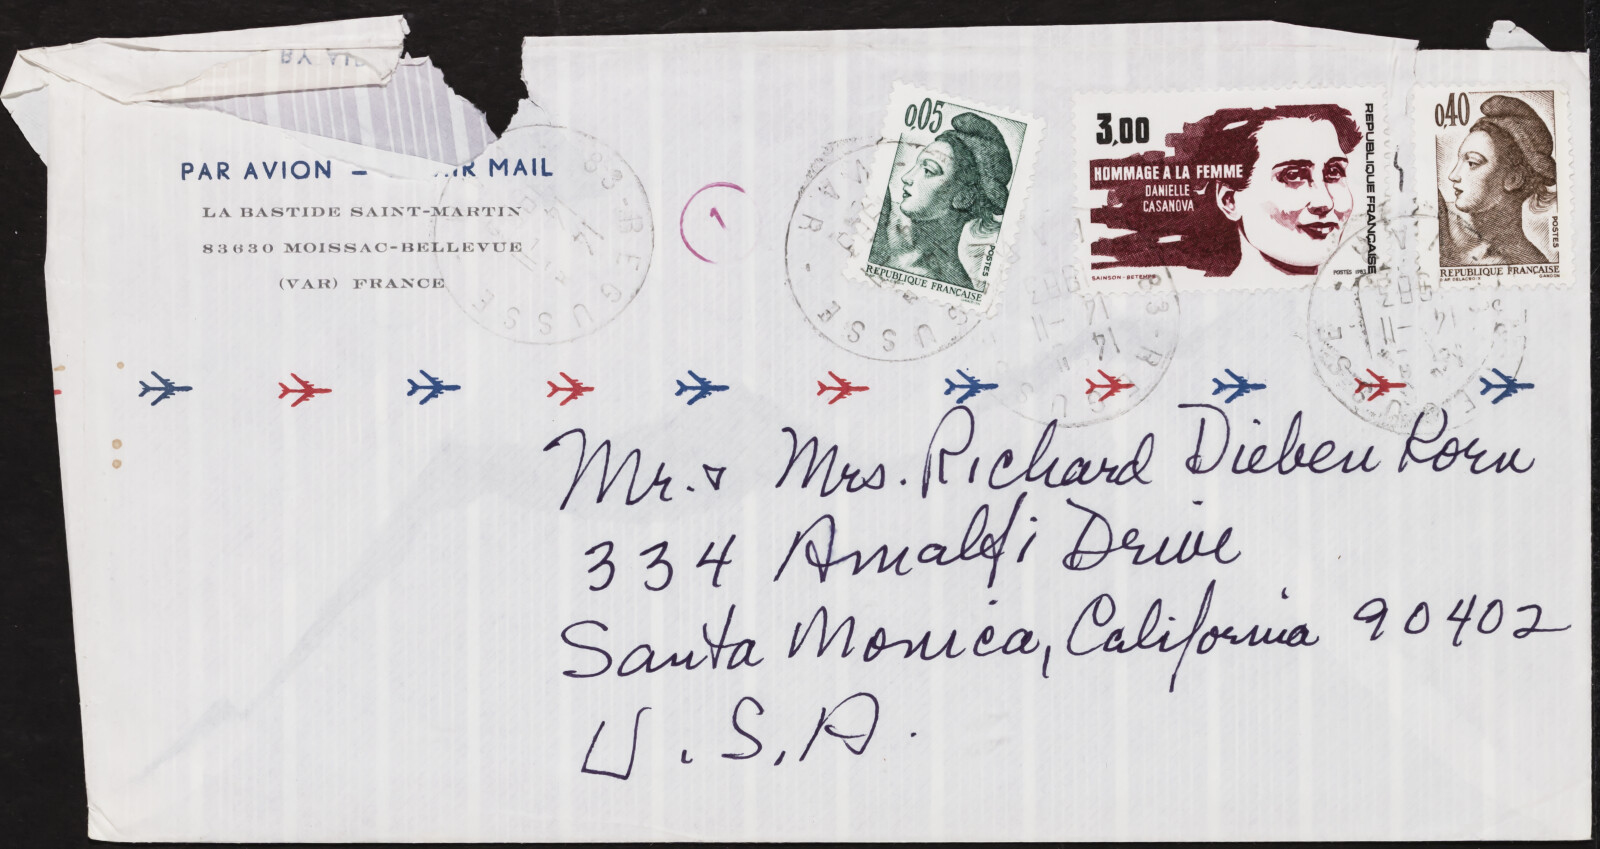 BY AIR
PAR AVION – AIR MAIL
LA BASTIDE SAINT-MARTIN
83630 MOISSAC-BELLEVUE
(VAR) FRANCE
83-REGUSSE
14
1
0,05
POSTES
REPUBLIQUE FRANÇAISE
REGUSSE
VAR
3,00
HOMMAGE A LA FEMME
DANIELLE
CASANOVA
REPUBLIQUE FRANCAISE
SAINSON-BETEMPS
POSTES 1983
83-REGUSSE
14-11
1983
0,40
POSTES
REPUBLIQUE FRANÇAISE
REGUSSE
14-11
1983
Mr. & Mrs. Richard Dieben Korn
334 Amalfi Drive
Santa Monica, California 90402
U.S.A.